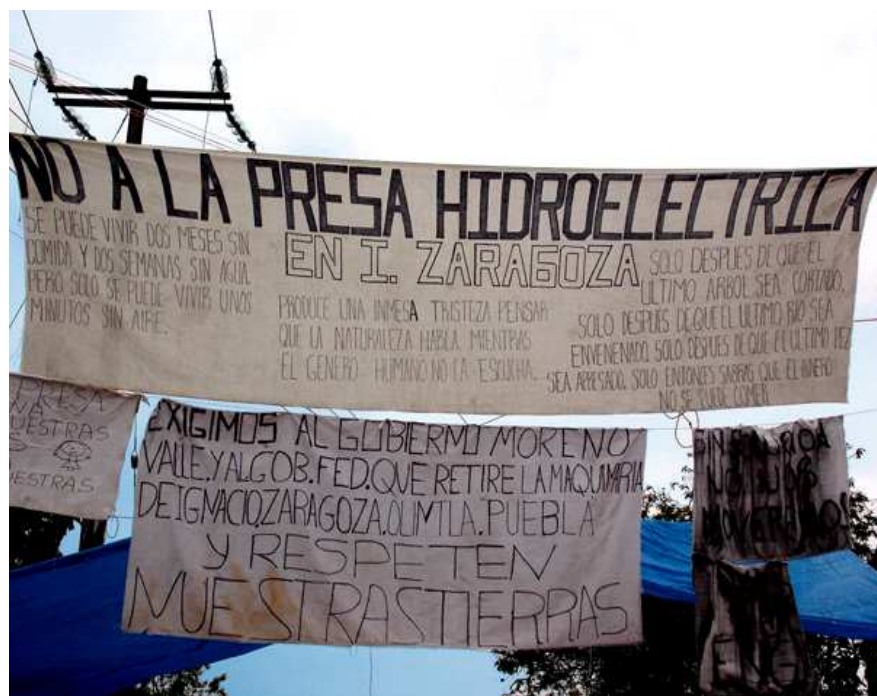 NO A LA PRESA HIDROELECTRICA
EN I. ZARAGOZA
SE PUEDE VIVIR DOS MESES SIN
COMIDA Y DOS SEMANAS SIN AGUA
PERO SOLO SE PUEDE VIVIR UNOS
MINUTOS SIN AIRE.
PRODUCE UNA INMESA TRISTEZA PENSAR
QUE LA NATURALEZA HABLA MIENTRAS
EL GENERO HUMANO NO LA ESCUCHA.
SOLO DESPUES DE QUE EL
ULTIMO ARBOL SEA CORTADO,
SOLO DESPUES DE QUE EL ULTIMO RIO SEA
ENVENENADO, SOLO DESPUES DE QUE EL ULTIMO PEZ
SEA APRESADO, SOLO ENTONCES SABRAS QUE EL DINERO
NO SE PUEDE COMER
PRESA
NUESTRAS
NUESTRAS
EXIGIMOS AL GOBIERMO MORENO
VALLE.Y AL GOB.FED.QUE RETIRE LA MAQUIMARIA
DE IGNACIO.ZARAGOZA.OLIMTLA.PUEBLA
Y RESPETEN
NUESTRAS TIERRAS